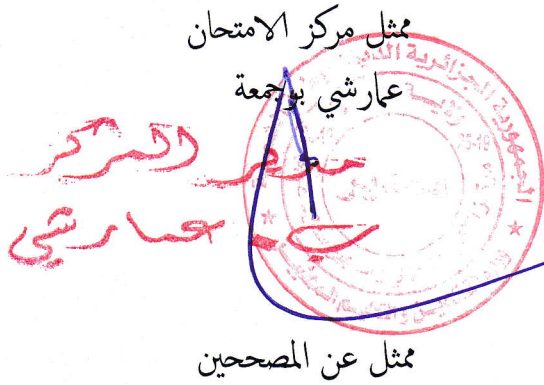 ممثل مركز الامتحان
عمارشي بوجمعة
مدير المركز
ب. عمارشي
الجمهورية الجزائرية
ممثل عن المصححين